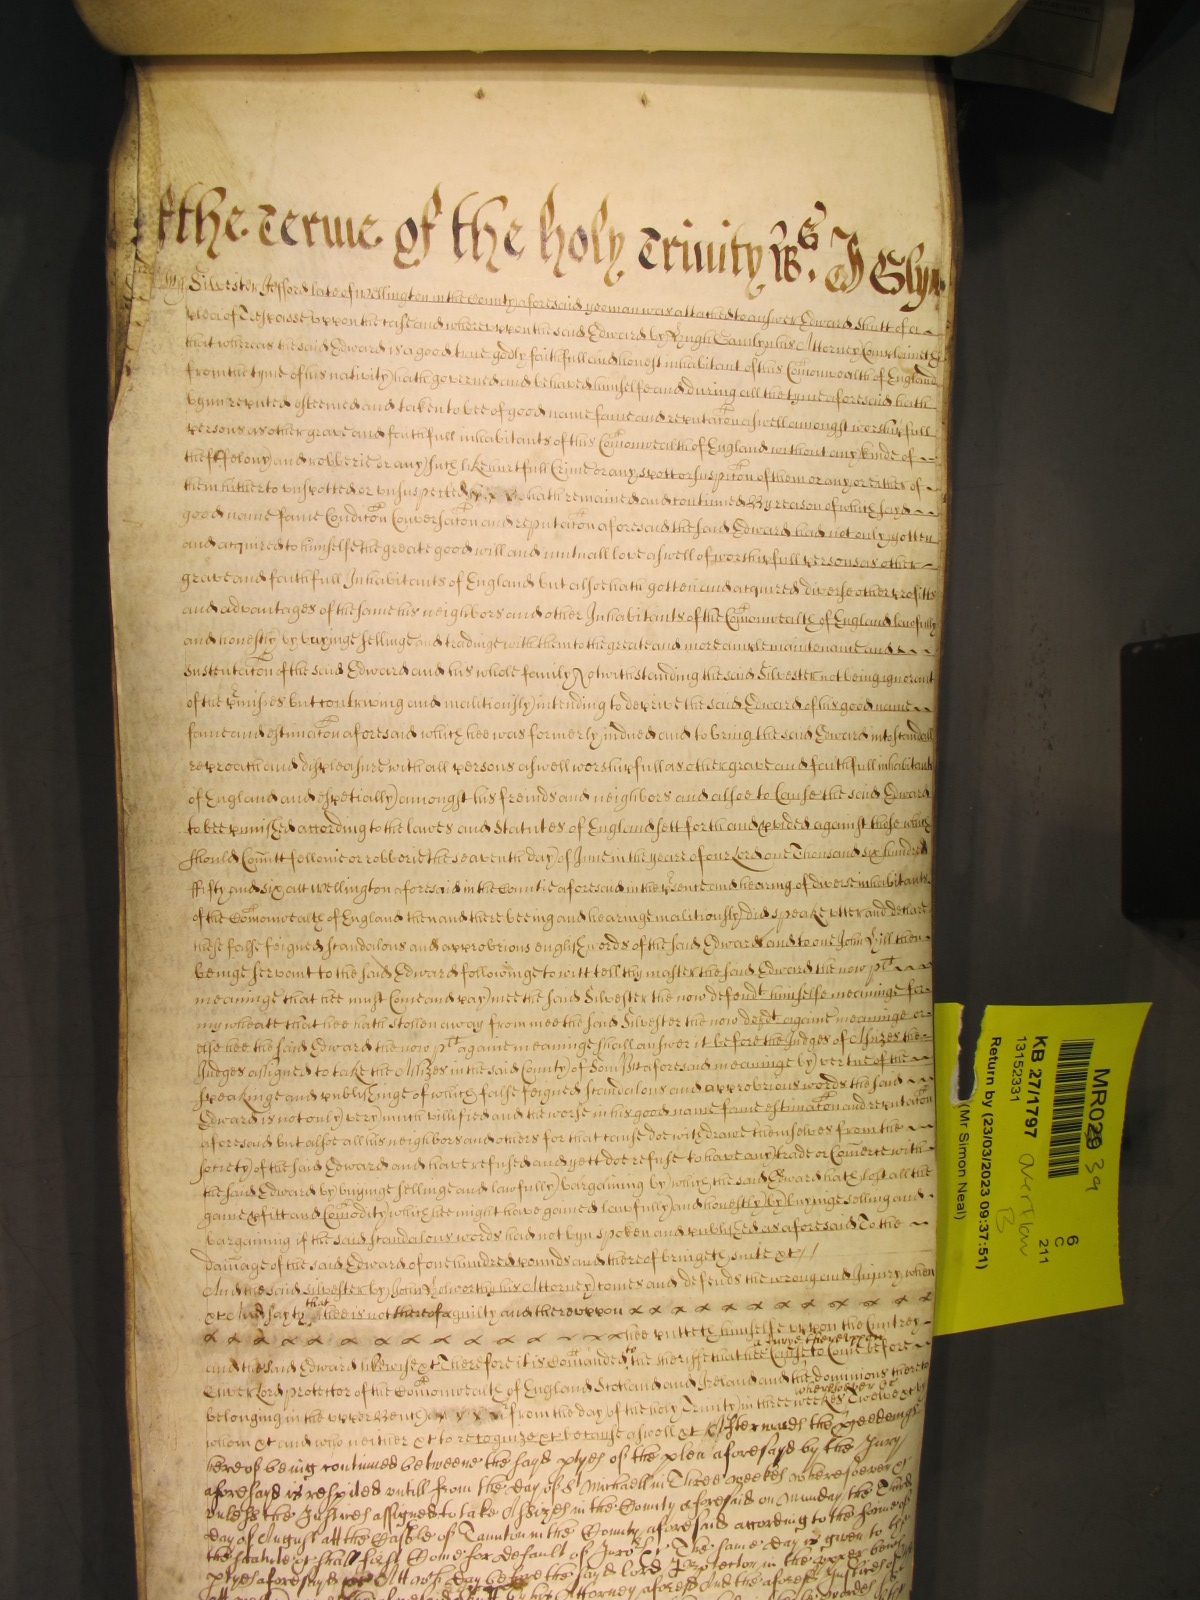 the Terme of the holy Trinity Ws. J Glyn
Silvester Jefford late of Wellington in the County aforesaid yeoman was attached to answer Edward Shutt of a
plea of Trespasse uppon the case and whereuppon the said Edward by Hugh his Attorney Complaineth
that whereas the said Edward is a good true godly faithfull and honest inhabitant of this Comonwealth of England
from the tyme of his nativity hath governed and behaved himselfe and during all the tyme aforesaid hath
byn reputed esteemed and taken to bee of good name fame and reputacon aswell amongst worshipfull
persons as other grave and faithfull inhabitants of this Comonwealth of England without any kinde of
theft ffelony and robberie or any such like hurtfull Crime or any spott or suspicon of them or any or either of
them hitherto unspotted or unsuspected hath remained and continued By reason of which said
good name fame Condicon Conversacon and reputacon aforesaid the said Edward had not only gotten
and acquired to himselfe the greate good will and mutuall love aswell of worshipfull persons as other
grave and faithfull Inhabitants of England but alsoe hath gotten and acquired diverse other profitts
and advantages of the same his neighbors and other Inhabitants of the Comonwealth of England lawfully
and honestly by buyinge sellinge and tradinge with them to the greate and more ample maintenance and
sustentacon of the said Edward and his whole family Notwithstanding the said Silvester not being ignorant
of the pmises but contriving and malitiously intending to deprive the said Edward of his good name
fame and estimacon aforesaid which hee was formerly indued and to bring the said Edward into scandall
reproach and displeasure with all persons aswell worshipfull as other grave and faithfull inhabitants
of England and espetially amongst his freinds and neighbors and alsoe to Cause the said Edward
to bee punished according to the lawes and Statutes of England sett forth and pvided against those which
should Comitt fellonie or robberie the seaventh day of June in the yeare of our Lord one Thousand six hundred
ffifty and six att Wellington aforesaid in the Countie aforesaid in the psence and hearing of diverse inhabitants
of the Comonwealth of England then and there beeing and hearinge malitiously did speake utter and declare
these false feigned scandalous and approbrious english words of the said Edward and to one John Hill then
beinge servant to the said Edward followinge to witt tell thy master the said Edward the now plt
meaninge that hee must Come and pay mee the said Silvester the now defendt himselfe meaninge for
my wheate that hee hath stollen away from mee the said Silvester the now defdt againe meaninge or
else hee the said Edward the now plt againe meaninge shall answer it before the Judges of Assizes the
Judges assigned to take the Assizes in the said County of Somsett aforesaid meaninge by vertue of the
speakinge and publishinge of which false feigned scandalous and approbrious words the said
Edward is not only very much villified and the worse in his good name fame estimacon and reputacon
aforesaid but alsoe all his neighbors and others for that cause doe withdrawe themselves from the
society of the said Edward and have refused and yett doe refuse to have any trade or Comerce with
the said Edward by buyinge sellinge and lawfully bargaining by which the said Edward hath lost all the
gaine pfitt and Comodity which hee might have gained lawfully and honestly by buyinge selling and
bargaining if the said scandalous words had not byn spoken and published as aforesaid To the
damage of the said Edward of one hundred pounds and thereof bringeth suite &c //
And the said Silvester by John his Attorney comes and defends the wrong and Injury when
&c And sayth that hee is not thereof guilty and thereuppon
hee putteth himselfe uppon the Countrey
and the said Edward likewise &c Therefore it is Comanded to the sheriffe that hee Cause a Jurye thereuppon to Come before
Oliver Lord protector of the Comonwealth of England Scotland and Ireland and the dominions thereto
belonging in the upper Bench from the day of the holy Trinity in three weekes wheresoever &c Twelve &c by
whom &c and who neither &c to recognize &c because aswell &c Afterwards the pceedings
hereof being continued betweene the sayd ptyes of the plea aforesayd by the Jury
aforesayd is respited untill from the day of St Michaell in Three weekes wheresoever &c
unless the Justices assigned to take Assizes in the County aforesaid on Munday the Third
day of August att the Castle of Taunton in the County aforesaid according to the forme of
the statute &c shall first Come for default of Jurors &c The same day is given to the
ptyes aforesayd Att wch day before the sayd lord Protector in the upper bench
by his Attorney aforesd And the aforesd Justices of
MR029 39
KB 27/1797
13152331
Return by (23/03/2023 09:37:51)
(Mr Simon Neal)
overflow
B
6
C
211